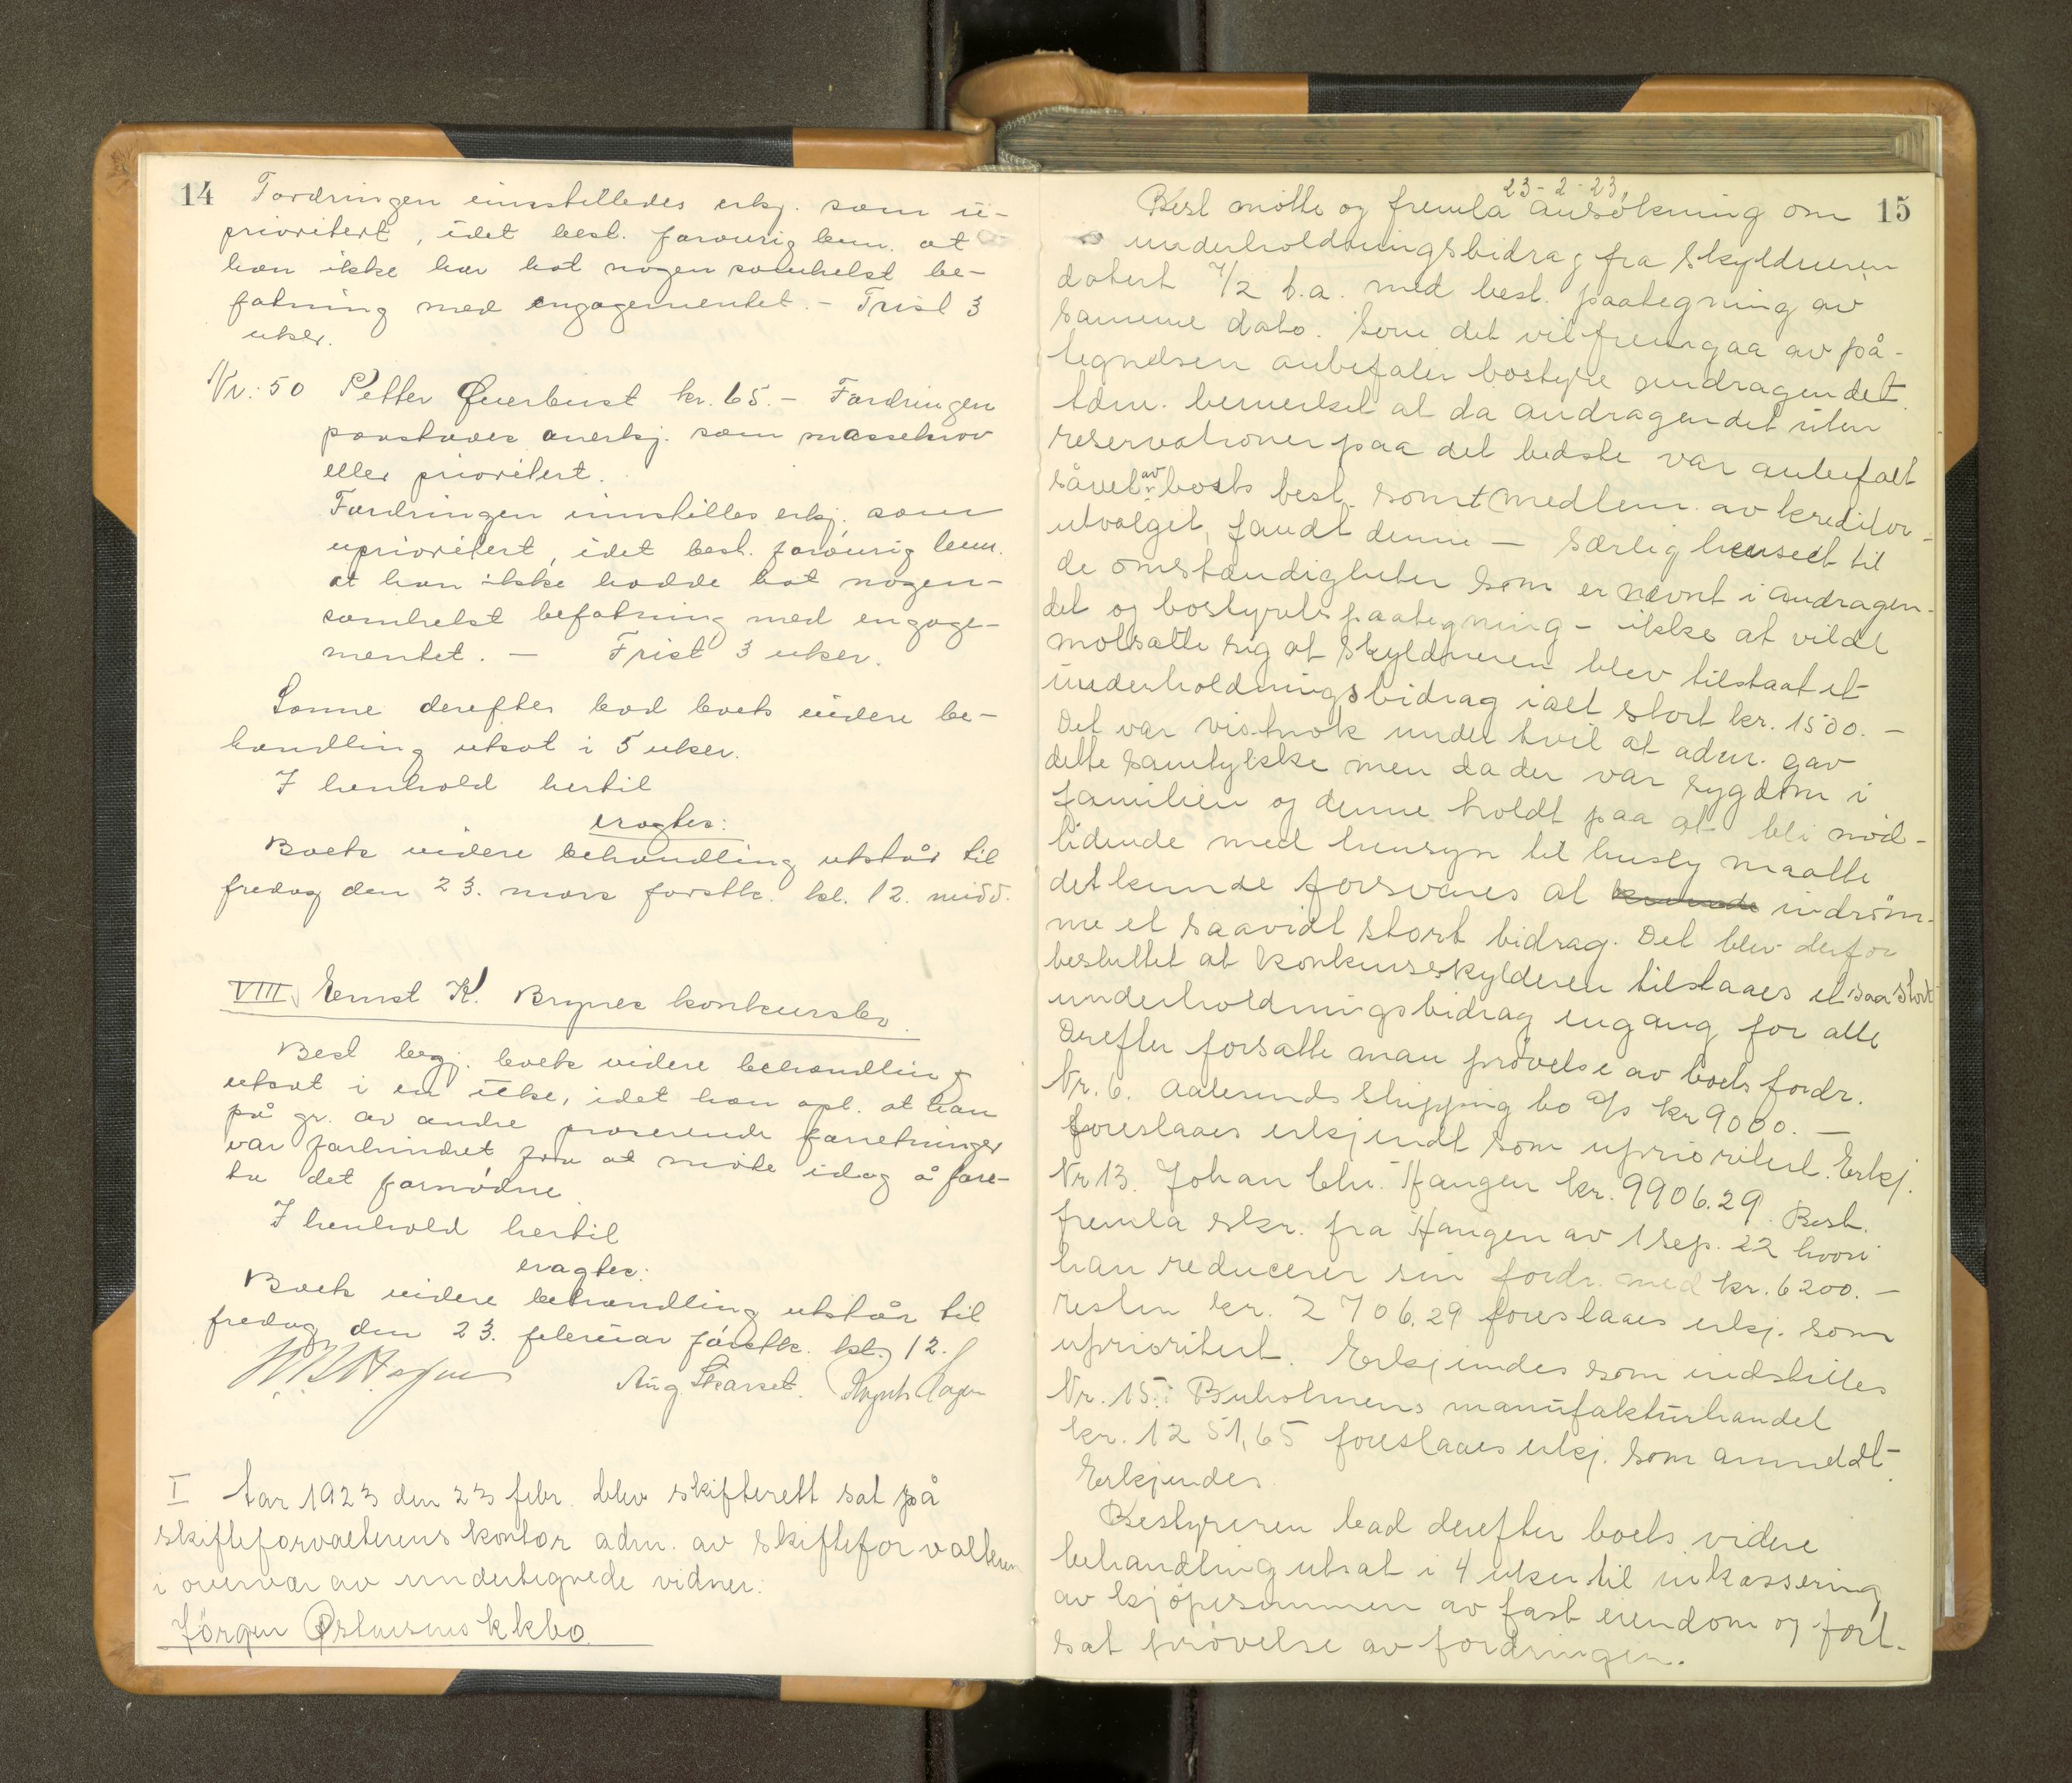 14 Fordringen innstilledes erkj. som u-
prioritert, idet best. forøvrig bem. at
han ikke har hat nogen somhelst be-
fatning med engagementet. - Frist 3
uker.
Nr. 50 Petter Querbust kr. 65. - Fordringen
paastaaes anerkj. som massekrav
eller prioritert.
Fordringen innstilles erkj. som
uprioritert, idet best. forøvrig bem.
at han ikke hadde hat nogen-
somhelst befatning med engage-
mentet. - Frist 3 uker.
Samme derefter bad boets videre be-
handling utsat i 5 uker.
I henhold hertil
eragtes:
Boets videre behandling utstår til
fredag den 23. mars førstk. kl. 12. midd.
VIII. Ernst K. Brynes konkursbo.
Best begj. boets videre behandling
utsat i en uke, idet han opl. at han
på gr. av andre presserende forretninger
var forhindret fra at møte idag å fore-
ta det fornødne.
I henhold hertil
eragtes:
Boets videre behandling utstår til
fredag den 23. februar førstk. kl. 12.
Aug Skarset.
I Aar 1923 den 23 febr. blev skifterett sat på
skifteforvalterens kontor adm. av skifteforvalteren
i overvær av undertegnede vidner:
Jörgen Østmsens kkbo
23-2-23. 15
Best mötte og fremla ansökning om
underholdningsbidrag fra skyldneren
datert 7/2 d.a. med best. paategning av
samme dato. Som det vil fremgaa av på-
tegnelsen anbefaler bostyre andragendet.
Adm. bemerket at da andragendet uten
reservationer paa det bedste var anbefalt
såvel av boets best. somt medlem. av kreditor-
utvalget, fandt denne - særlig henseet til
de omstændigheter som er nævnt i andragen-
det og bostyrets paategning - ikke at vilde
motsætte sig at skyldneren blev tilstaat et
underholdningsbidrag ialt stort kr. 1500. -
Det var vistnok under tvil at adm. gav
dette samtykke men da der var sygdom i
familien og denne holdt paa at bli nöd-
lidende med hensyn til husly maatte
det kunde forsvares at kunde indröm-
me et saavidt stort bidrag. Det blev derfor
besluttet at konkursskylderen tilstaaes et saa stort
underholdningsbidrag engang for alle
Derefter forsatte man prövelse av boets fordr.
Nr. 6. Aalesunds Shipping bo a/s kr 9000. -
foreslaaes erkjendt som uprioritert. Erkj.
Nr 13. Johan Chr. Haugen kr. 9906.29. Best.
fremla skr. fra Haugen av 1 sep. 22 hvori
han reducerer sin fordr. med kr. 6200. -
resten kr. 2706.29 foreslaaes erkj. som
uprioritert. Erkjendes som indstilles
Nr. 15: Buholmens manufakturhandel
kr. 1251,65 foreslaaes erkj. som anmeldt.
Erkjendes.
Bestyreren bad derefter boets videre
behandling utsat i 4 uker til inkassering
av kjöpesummen av fast eiendom og fort-
sat prövelse av fordringen.